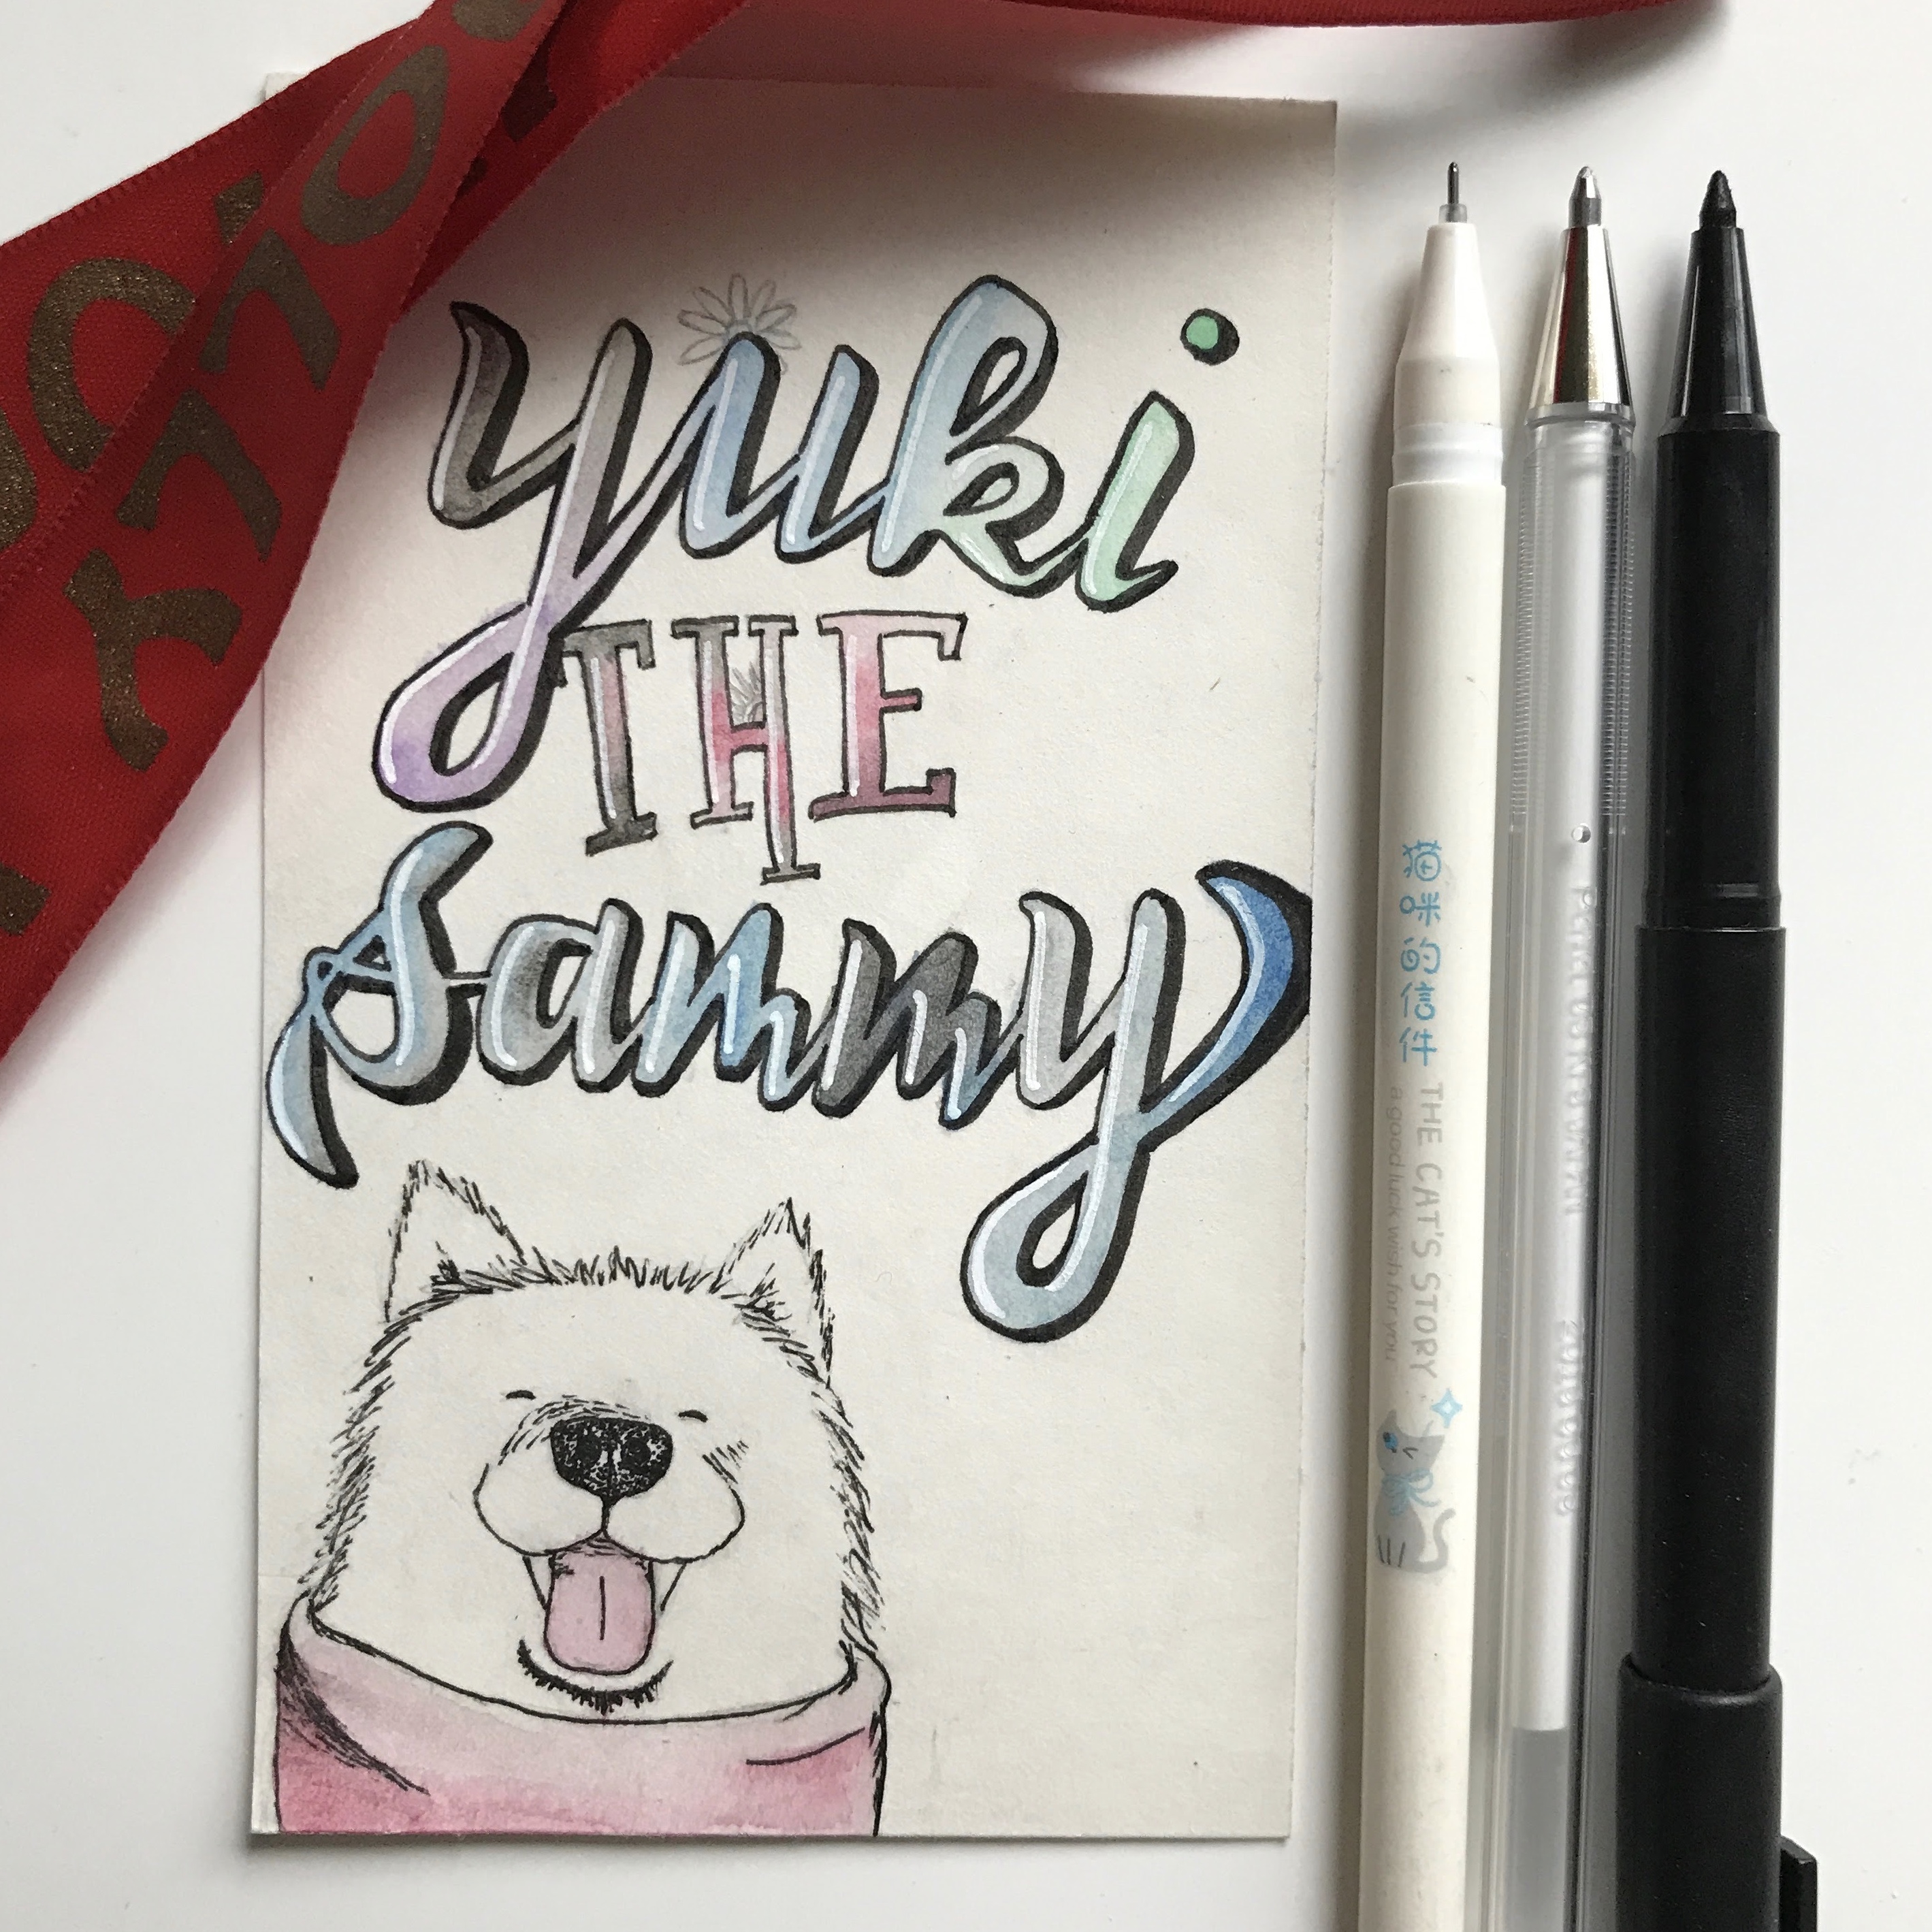 yuki
THE
Sammy
猫咪的信件 THE CAT'S STORY
a good luck wish for you